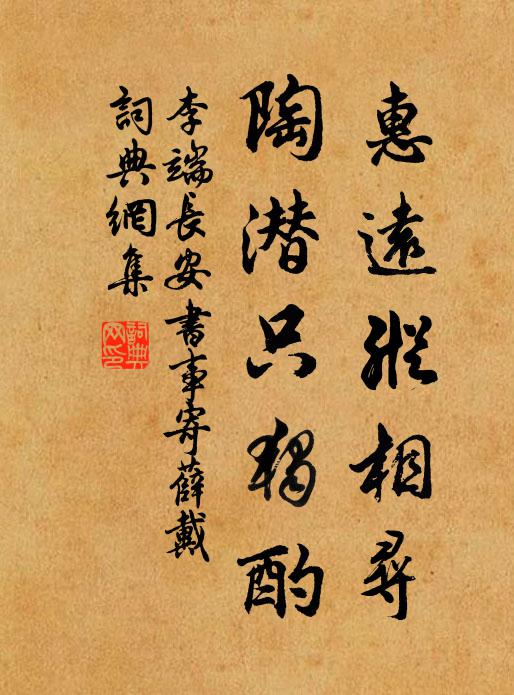 惠遠縱相尋
陶潛只獨酌
李端長安書事寄薛戴
詞典網集
詞典
网印